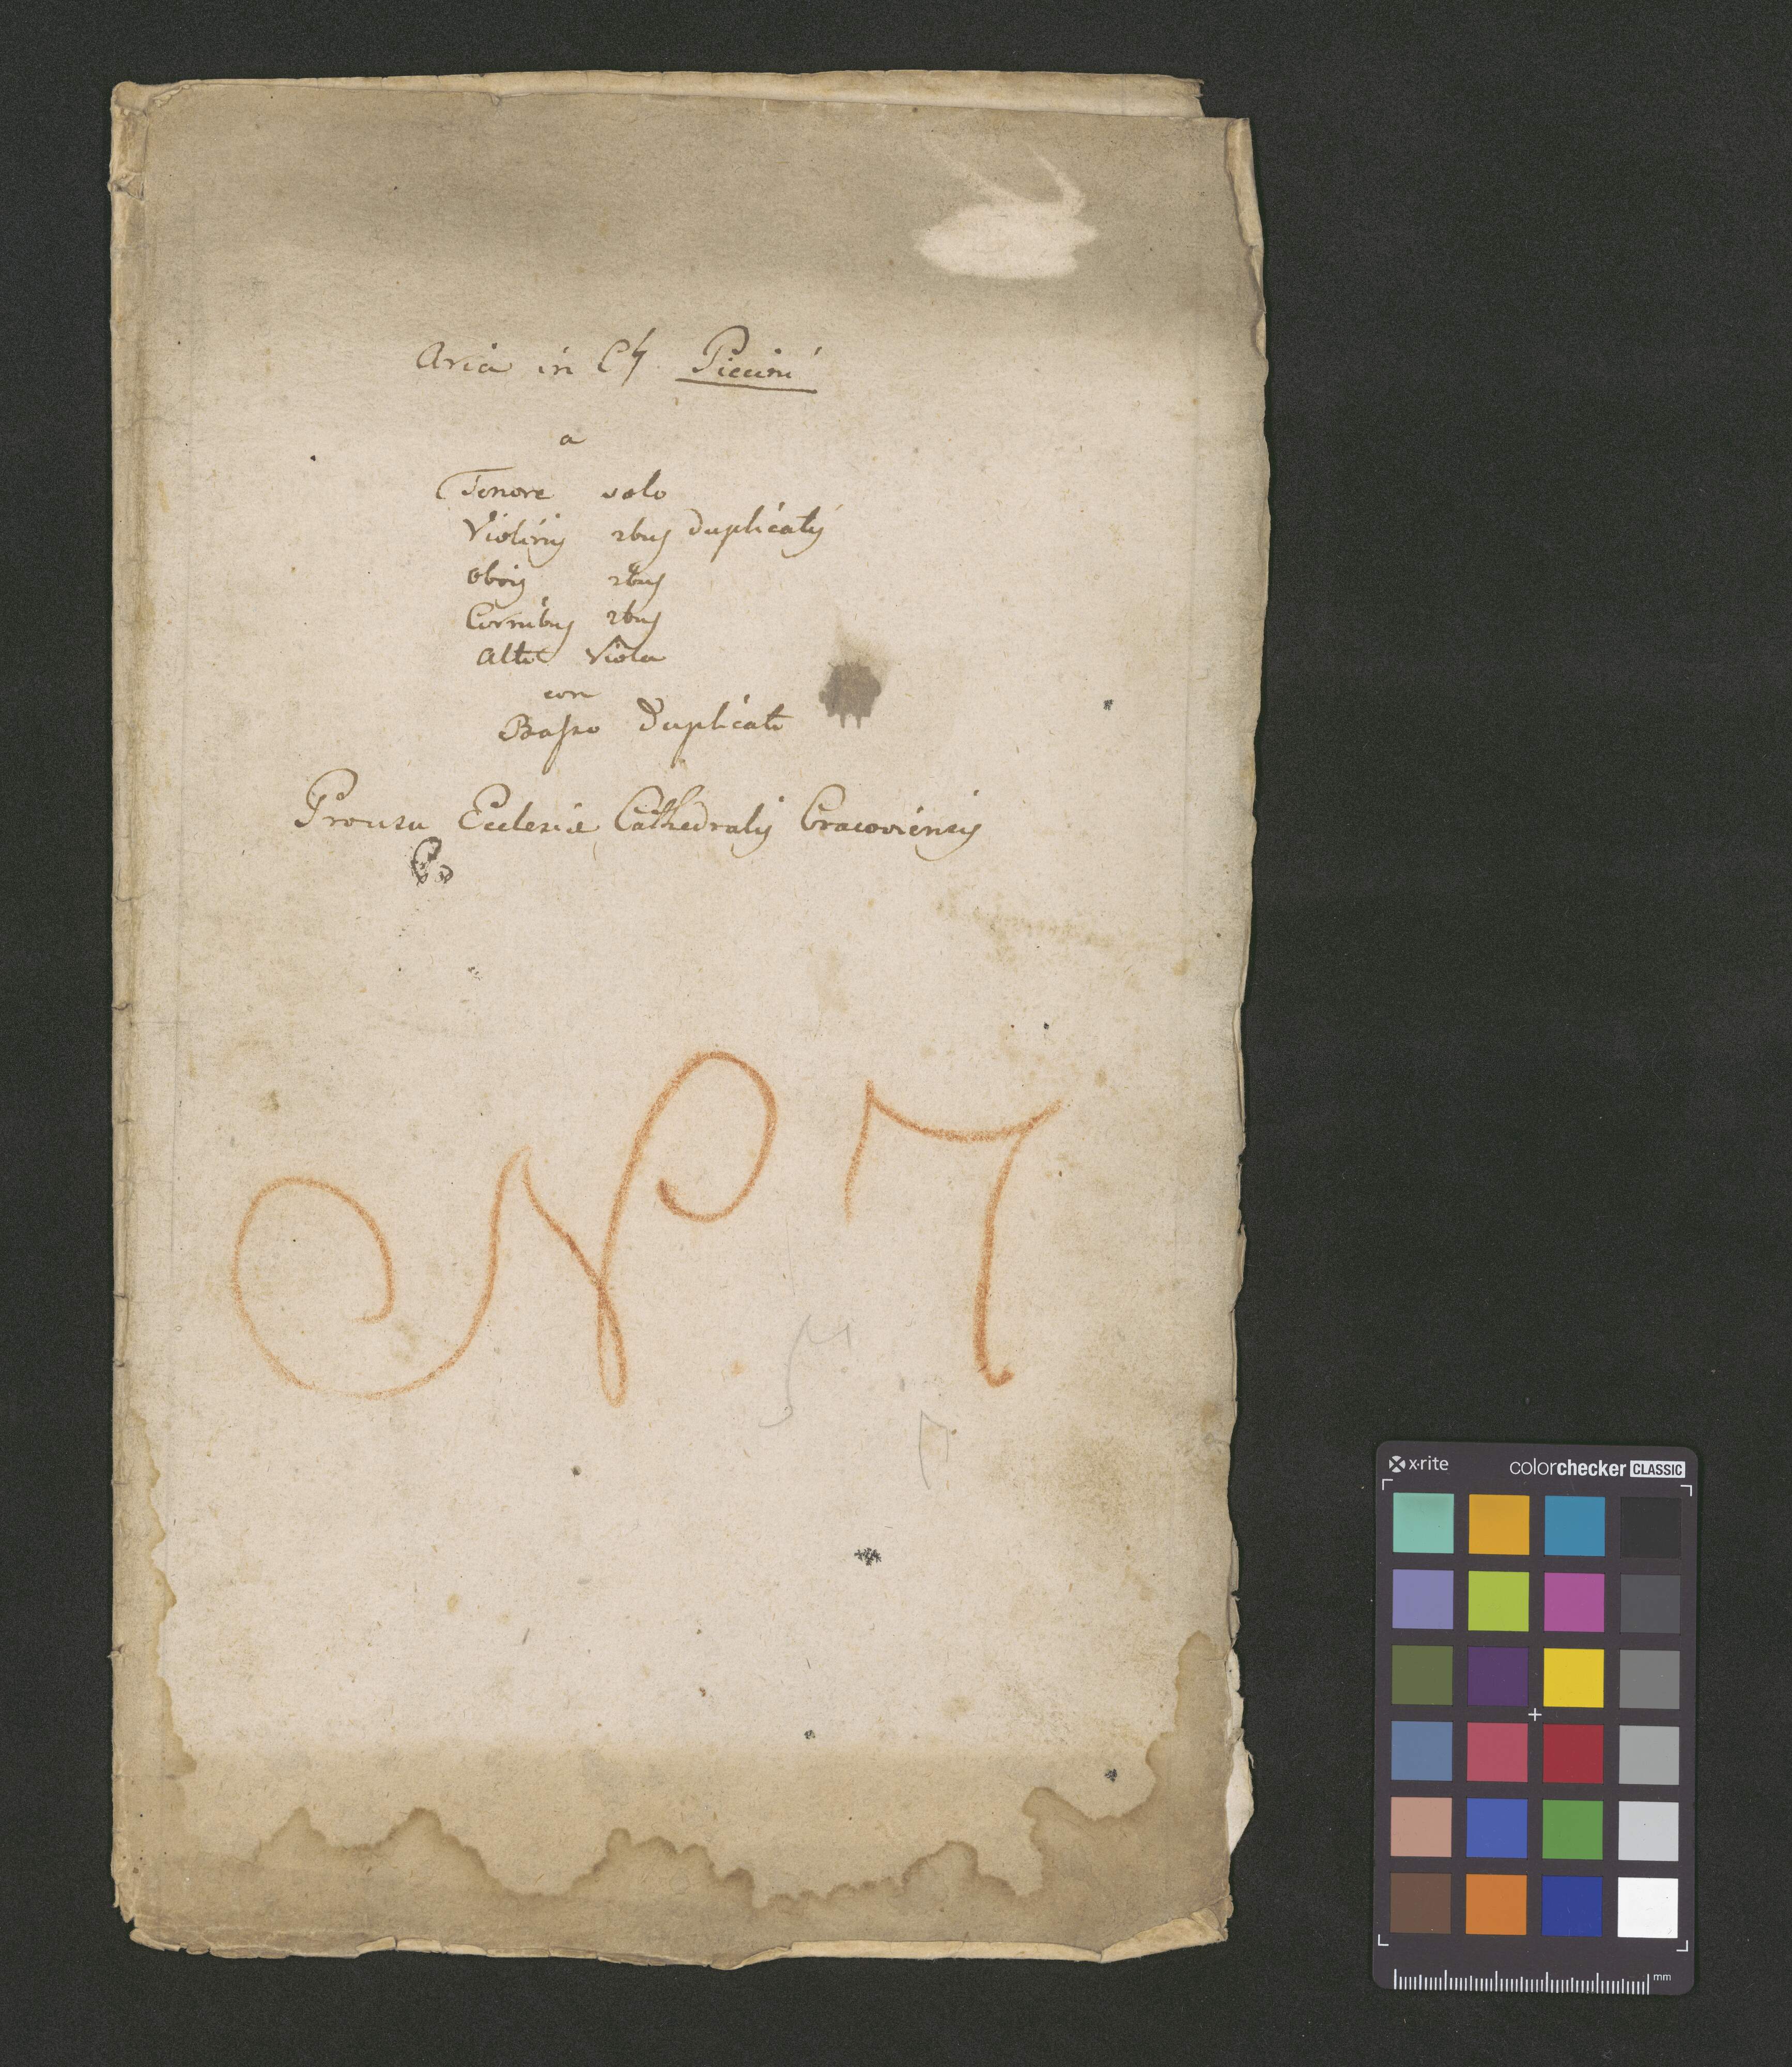 Aria in C♮ Piccini
a
Tenore solo
Violinis 2bus duplicatis
Obois 2bus
Cornibus 2bus
Alto Viola
con
Basso Duplicato
Pro usu Eclesiæ Cathedralis Cracoviensis
N 7
x·rite colorchecker CLASSIC
mm